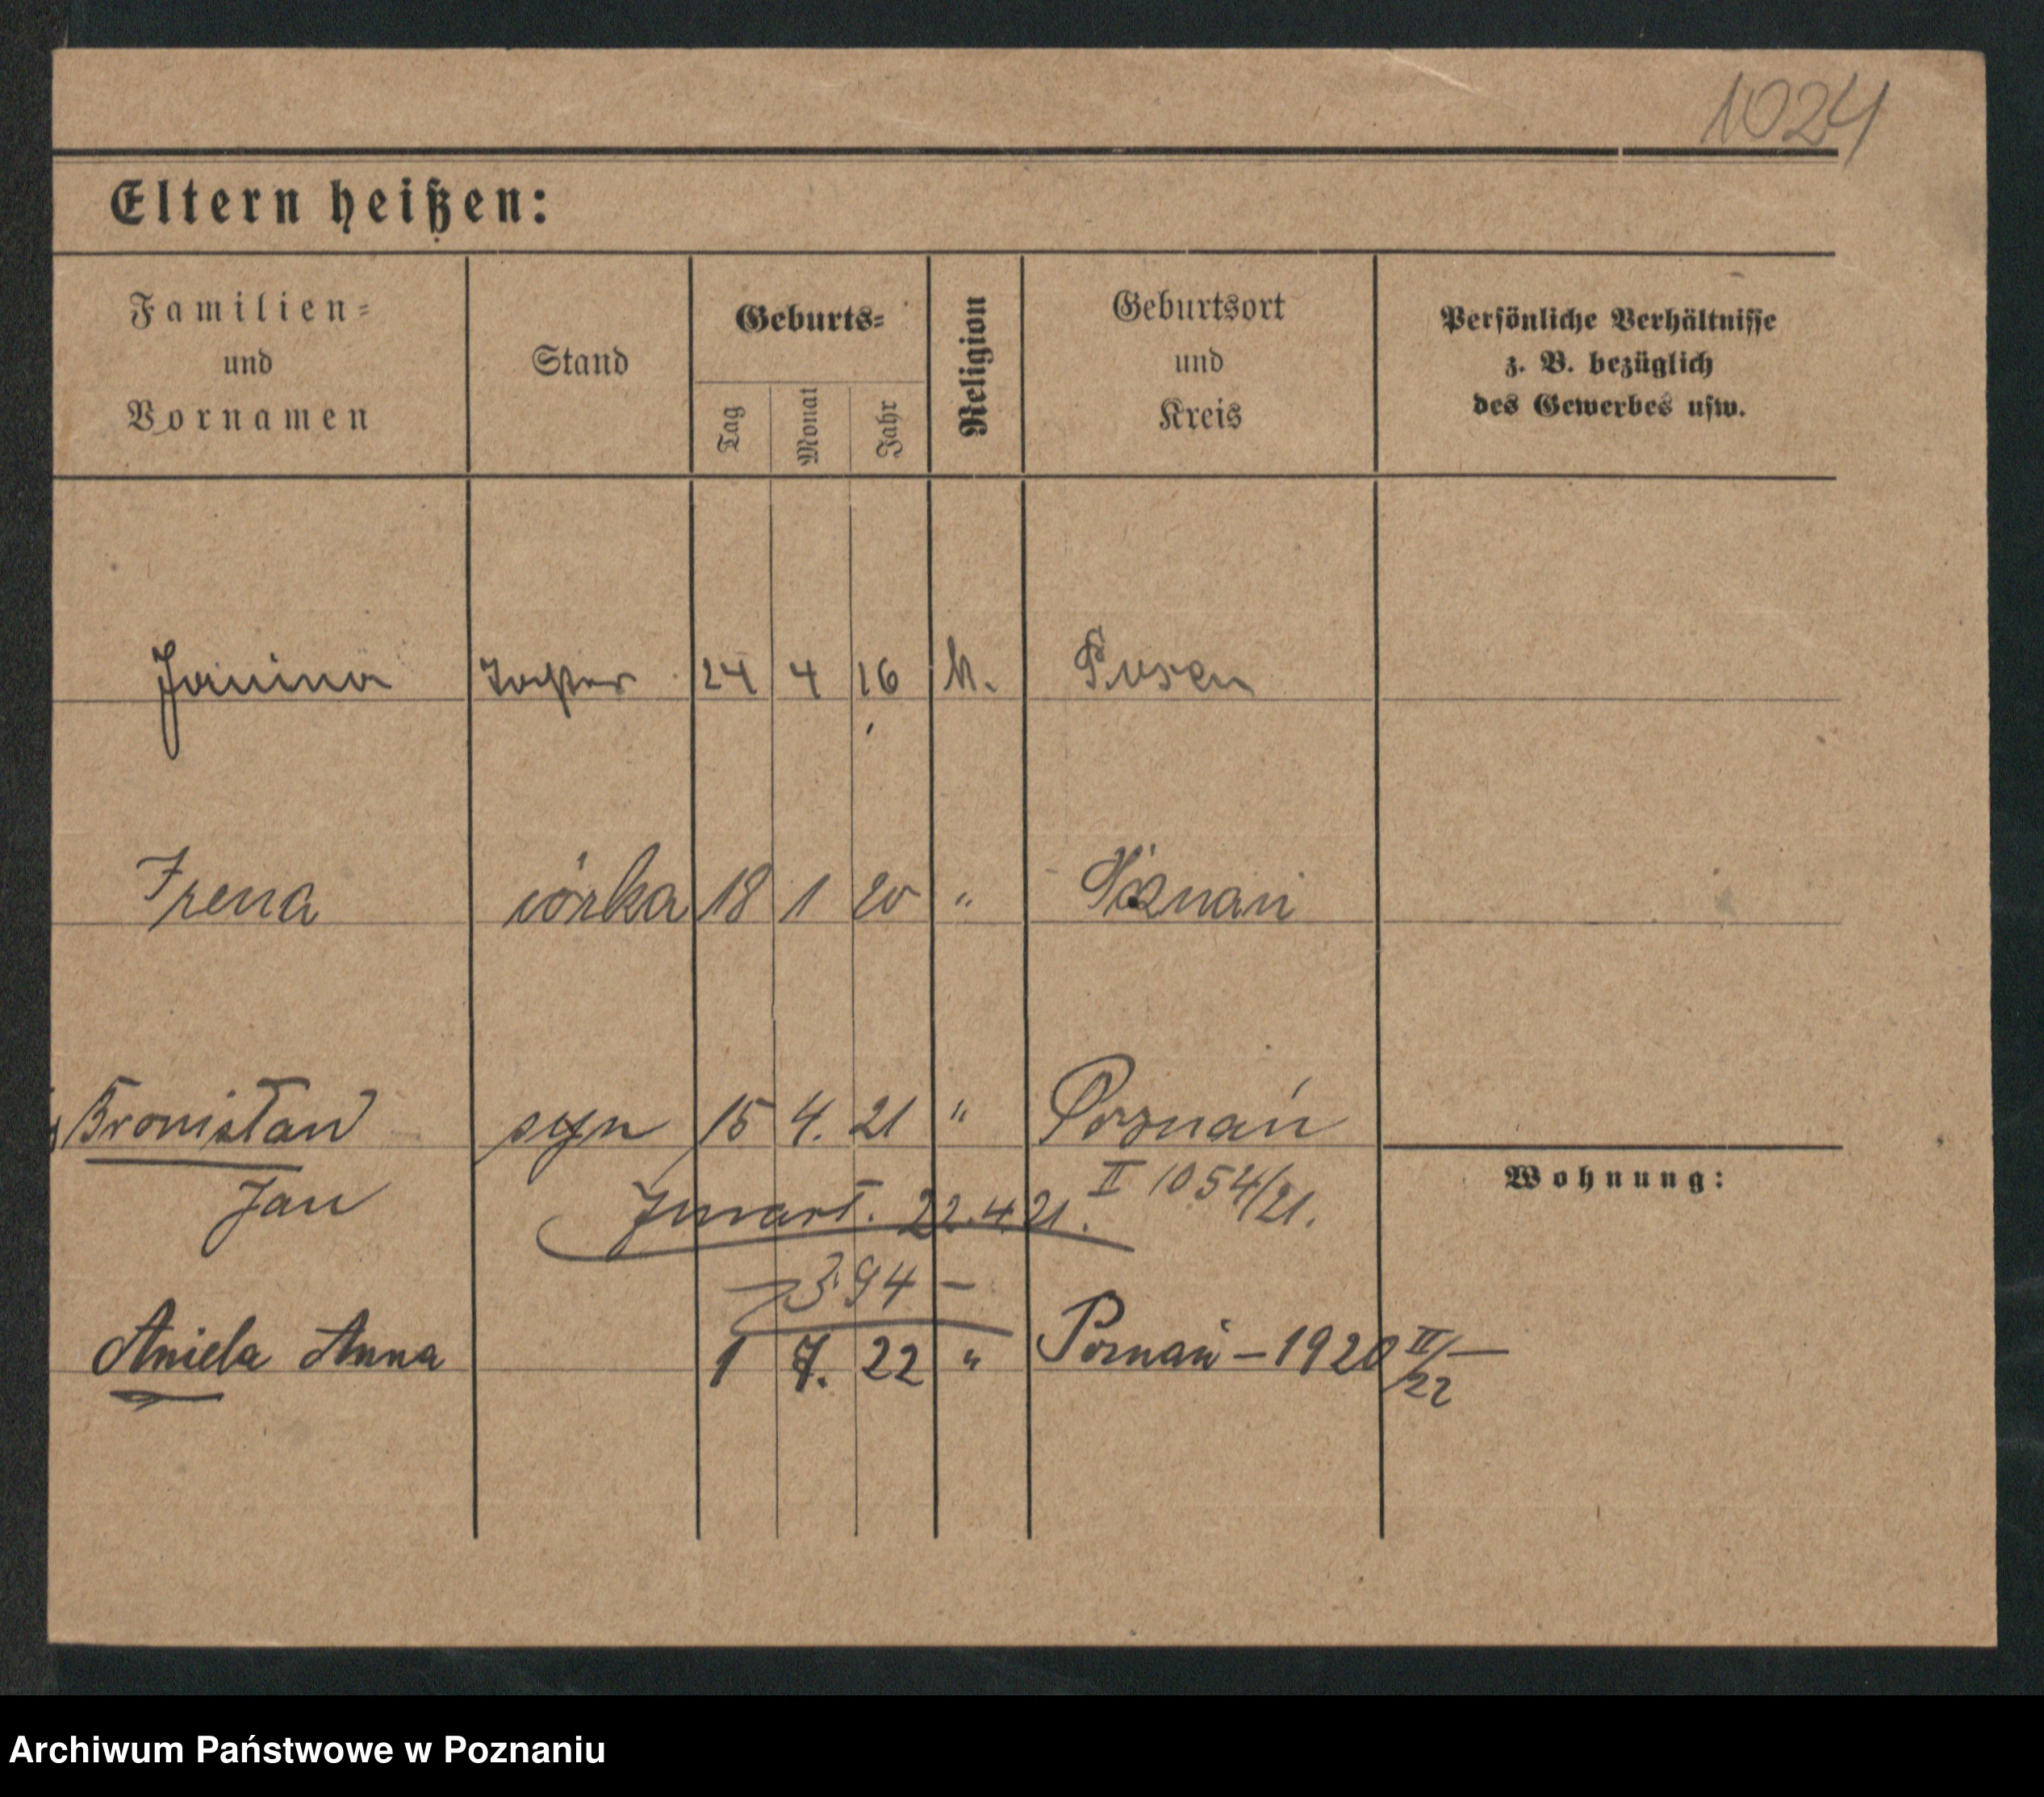 1024
Eltern heißen:
Familien=
und
Vornamen
Stand
Geburts=
Tag
Monat
Jahr
Religion
Geburtsort
und
Kreis
Persönliche Verhältnisse
z. B. bezüglich
des Gewerbes usw.
Janina Tochter 24 4 16 k. Posen
Irena córka 18 1 20 " Poznań
Bronisław syn 15 4. 21 " Poznań
Wohnung:
Jan zmarł. 22.4.21. II 1054/21.
394 –
Aniela Anna 1 7. 22 " Poznań – 1920 II/22 –
Archiwum Państwowe w Poznaniu